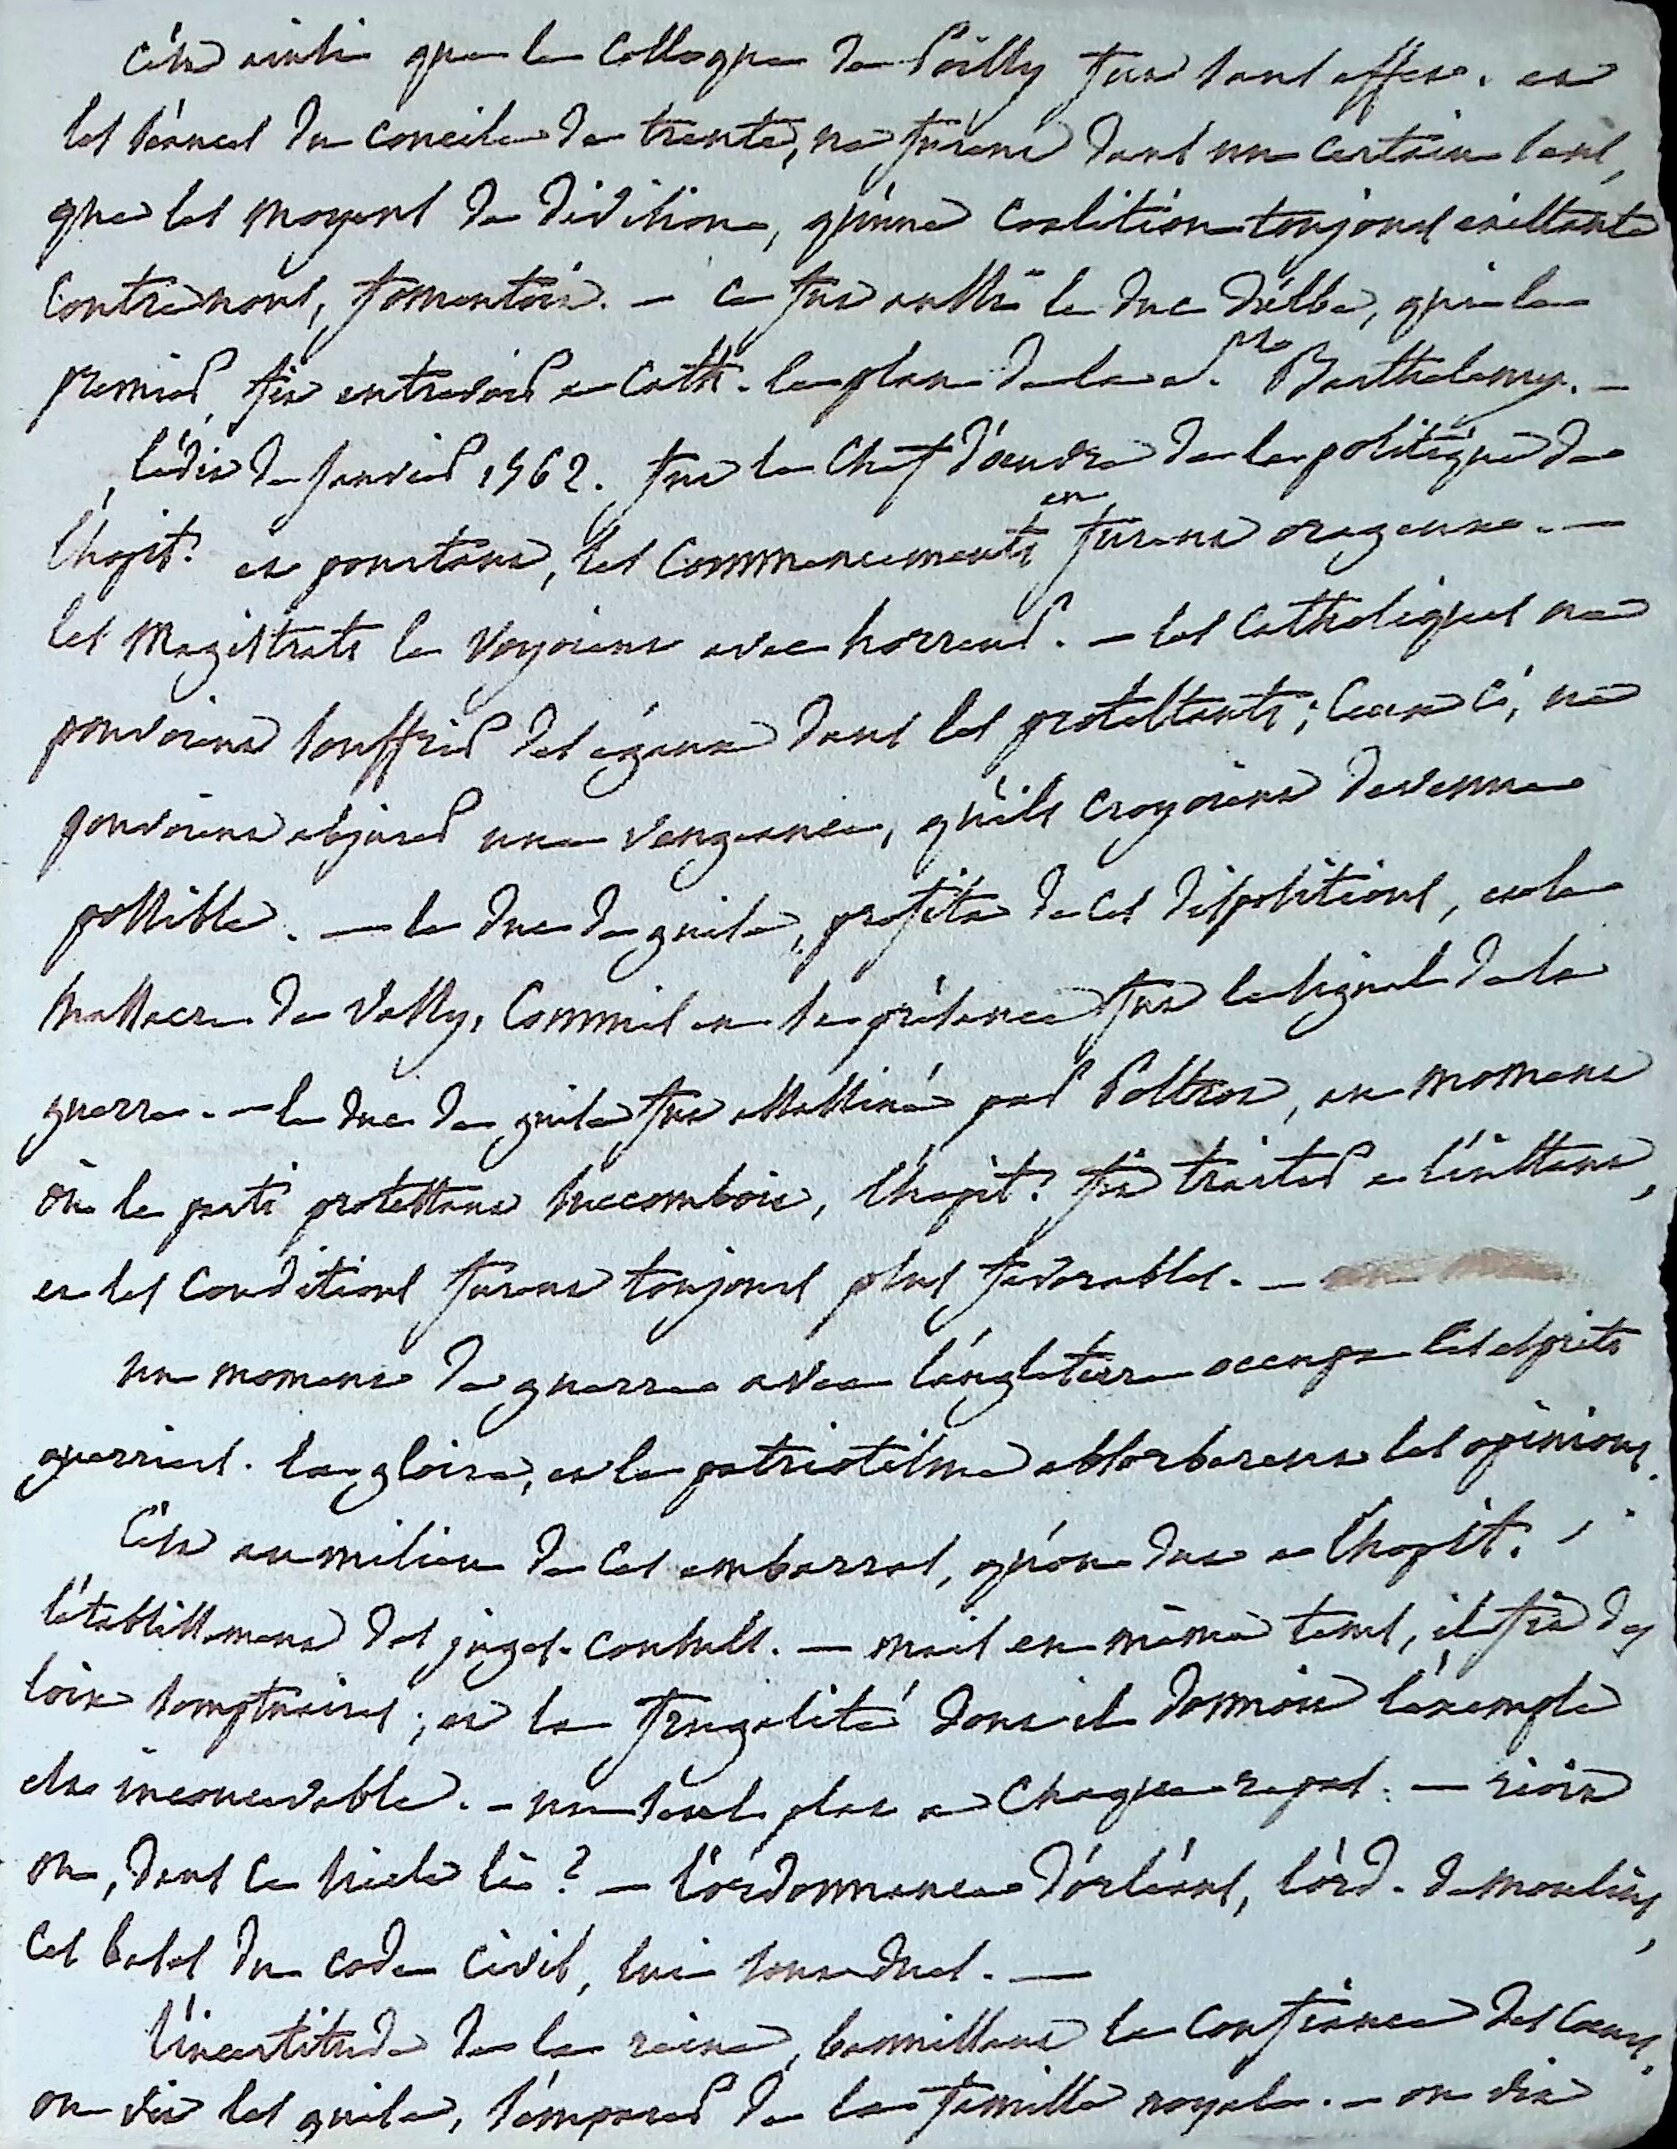 c'est ainsi que le Colloque de Poissy fut sans effet. et
les séances du concile de trente, ne furent dans un certain sens,
que les moyens de division, qu'une coalition toujours existante
contre nous, fomentoit. — ce fut aussi le duc d'albe, qui le
premier, fit entrevoir a Cath. le plan de la st. Barthelemy. —
l'édit de Janvier 1562. fut le Chef d'œuvre de la politique de
l'hopit. et pourtant, les Commencements en furent orageux. —
les Magistrats le Voyoient avec horreur. — les Catholiques ne
pouvoient souffrir des égaux dans les protestants; Ceux ci, ne
pouvoient abjurer une vengeance, qu'ils croyoient devenue
possible. — le duc de guise, profita de ces dispositions, et le
Massacre de Vassy, Commis en sa présence fut le signal de la
guerre. — le duc de guise fut assassiné par Poltrot, au moment
où le parti protestant succomboit, l'hopit. fit traiter a l'instant,
et les Conditions furent toujours plus favorables. —
un moment de guerre avec l'angleterre occupa les esprits
guerriers. la gloire, et le patriotisme absorberent les opinions.
C'est au milieu de ces embarras, qu'on dut a l'hopit.
l'établissement des juges-consuls. — mais en même tems, il fit des
loix somptuaires; et la frugalité dont il donnoit l'exemple
est inconcevable. — un seul plat a Chaque repas. — rioit
on, dans ce siecle là? — l'ordonnance d'orléans, l'ord. de moulins,
ces bases du code Civil, lui sont dues. —
l'incertitude de la reine, bannissant la Confiance des Cœurs,
on vit les guise, s'emparer de la famille royale. — on vit